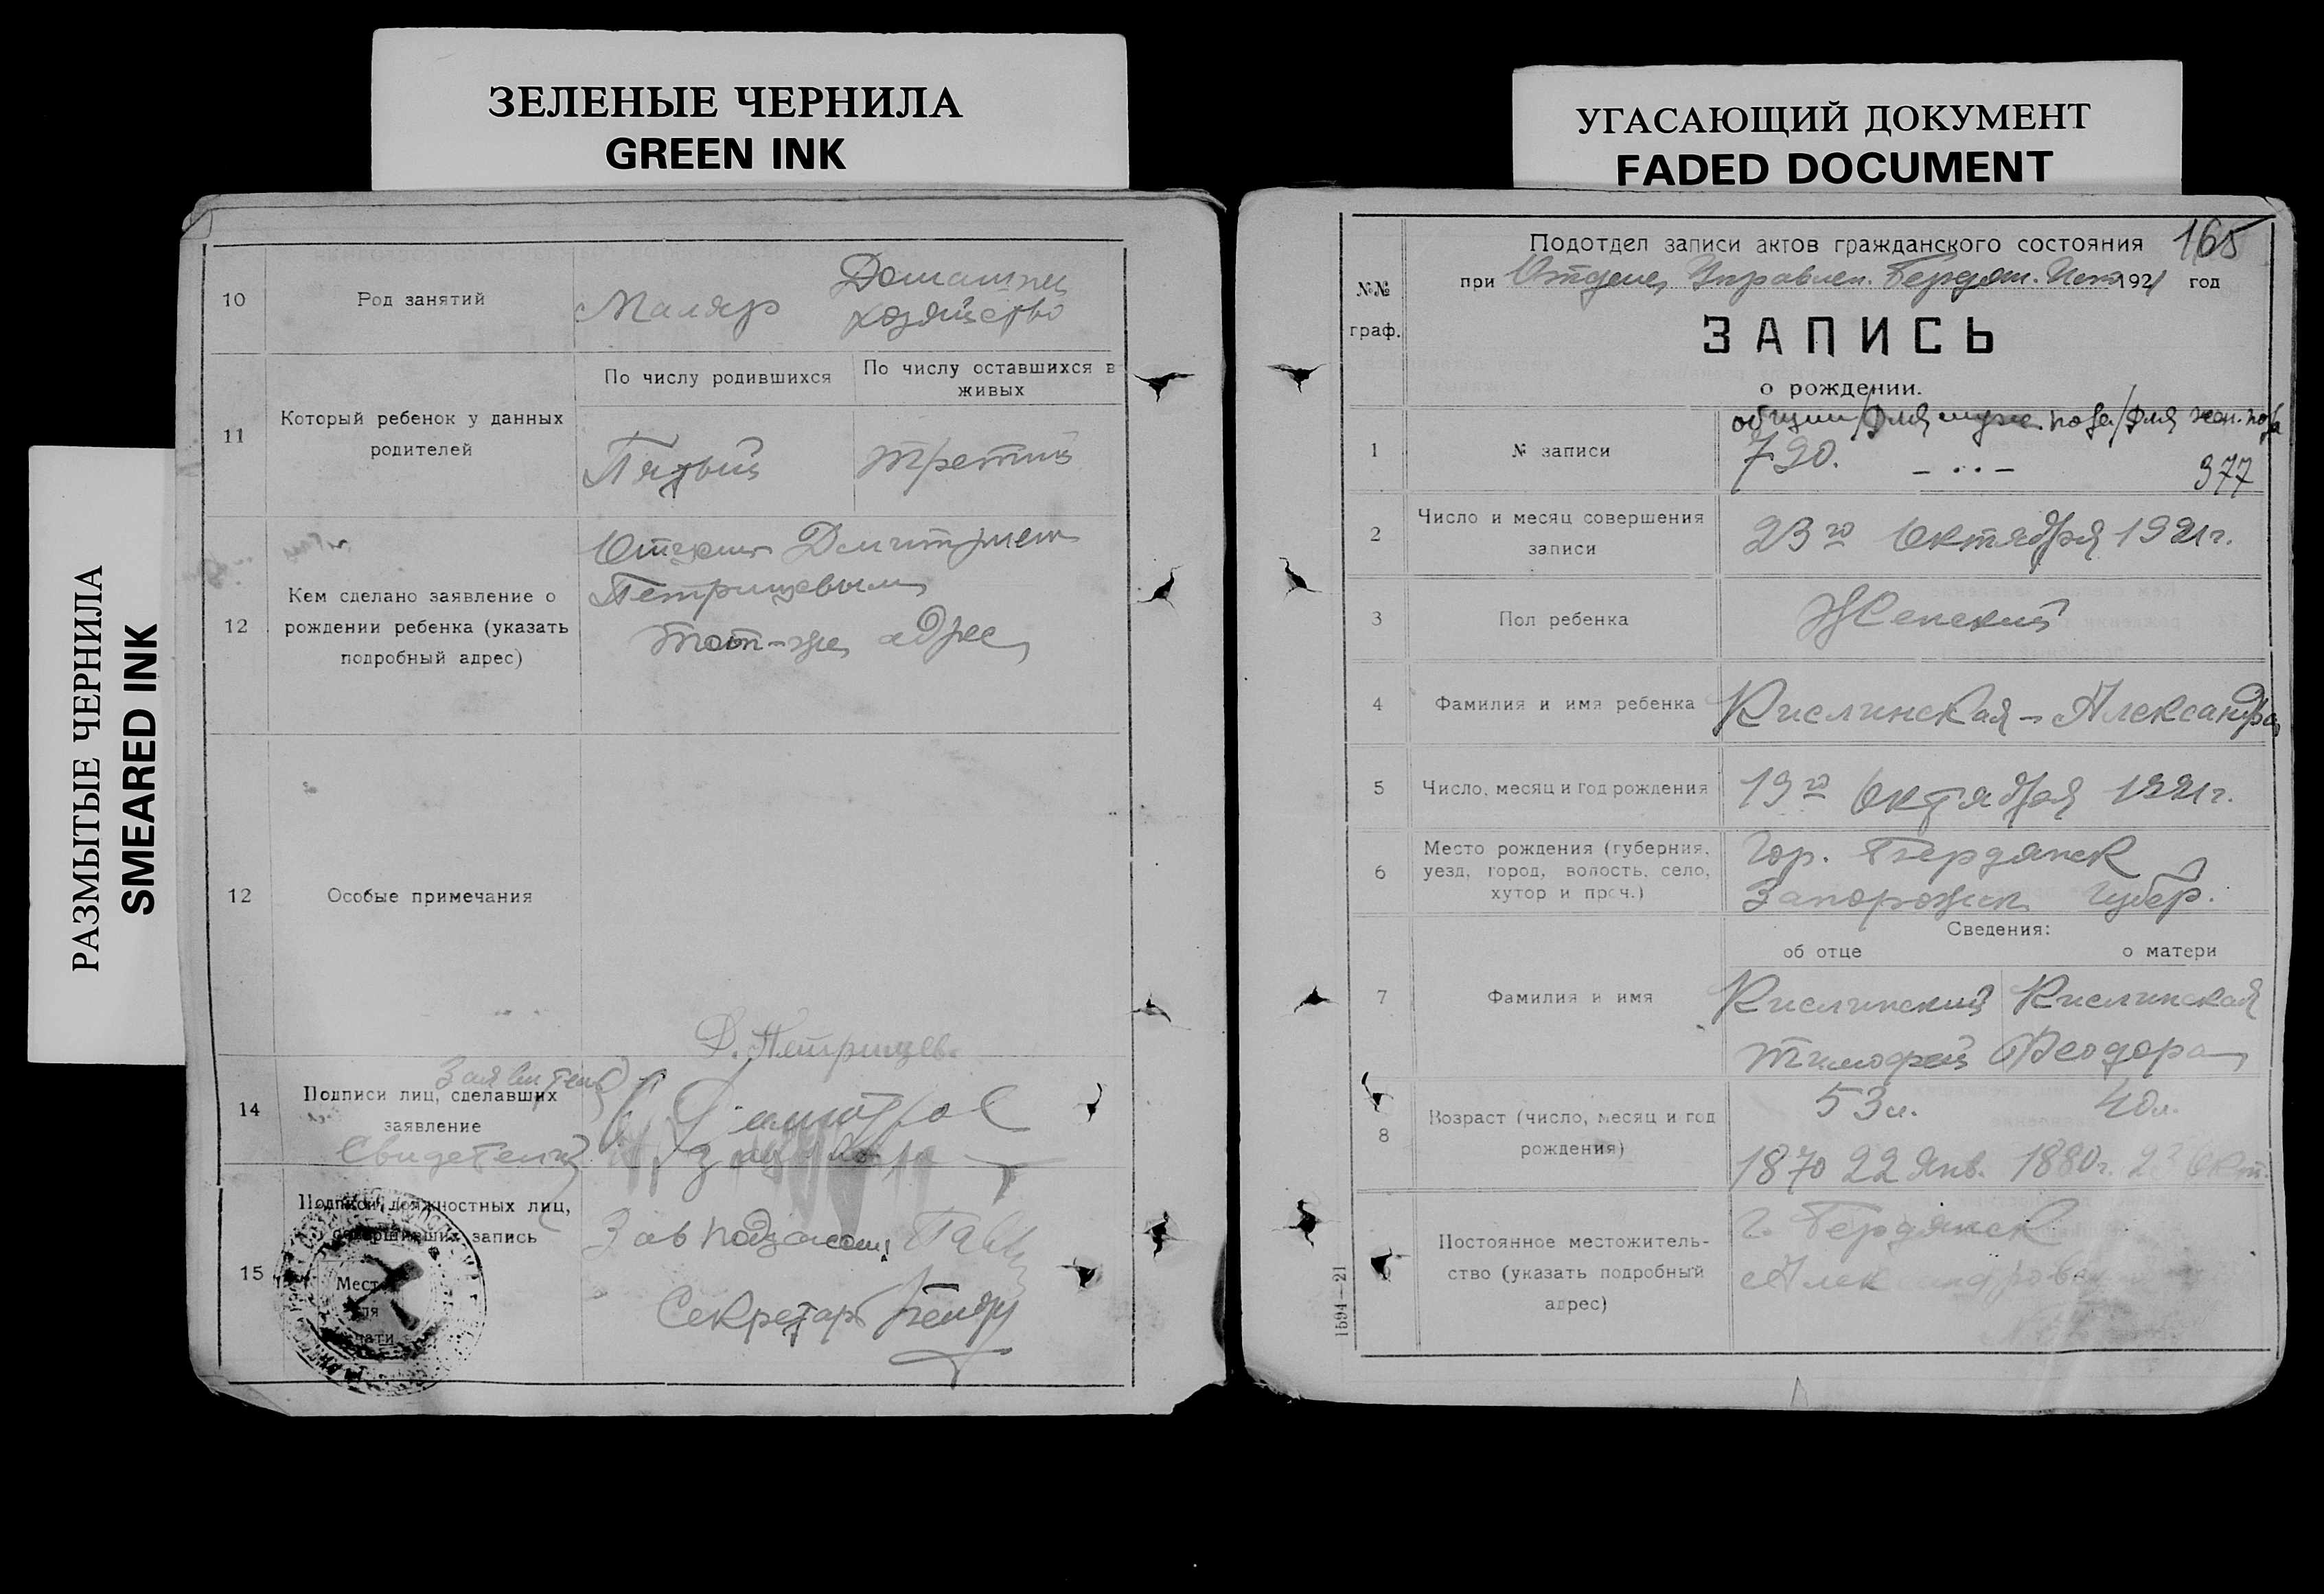 ЗЕЛЕНЫЕ ЧЕРНИЛА
GREEN INK
РАЗМЫТЫЕ ЧЕРНИЛА
SMEARED INK
10 Род занятий Маляр Домашнее хозяйство
11 Который ребенок у данных родителей
По числу родившихся
По числу оставшихся в живых
Пятый Третий
12 Кем сделано заявление о
рождении ребенка (указать
подробный адрес)
Отцем Дмитрием
Петрищевым
тот-же адрес
12 Особые примечания
Д. Петрищев.
Заявитель
14 Подписи лиц, сделавших
заявление
Свидетели
15 Подписи должностных лиц,
совершивших запись
Место
для
печати
Зав подзагсом
Секретарь
УГАСАЮЩИЙ ДОКУМЕНТ
FADED DOCUMENT
165
Подотдел записи актов гражданского состояния
при Отделе Управлен. Бердян. 1921 год
№№
граф.
ЗАПИСЬ
о рождении.
общий/для муж. пола/для жен. пола
1 № записи 720. - .. - 377
2 Число и месяц совершения
записи
23го Октября 1921г.
3 Пол ребенка Женский
4 Фамилия и имя ребенка Кислинская - Александра
5 Число, месяц и год рождения 19го Октября 1921г.
6 Место рождения (губерния,
уезд, город, волость, село,
хутор и проч.)
Гор. Бердянск
Запорожск. Губер.
Сведения:
об отце о матери
7 Фамилия и имя
Кислинский Кислинская
Тимофей Феодора
8 Возраст (число, месяц и год
рождения)
53л. 40л.
1870 22 Янв. 1880г. 23 Окт.
9 Постоянное местожитель-
ство (указать подробный
адрес)
г. Бердянск
1594—21